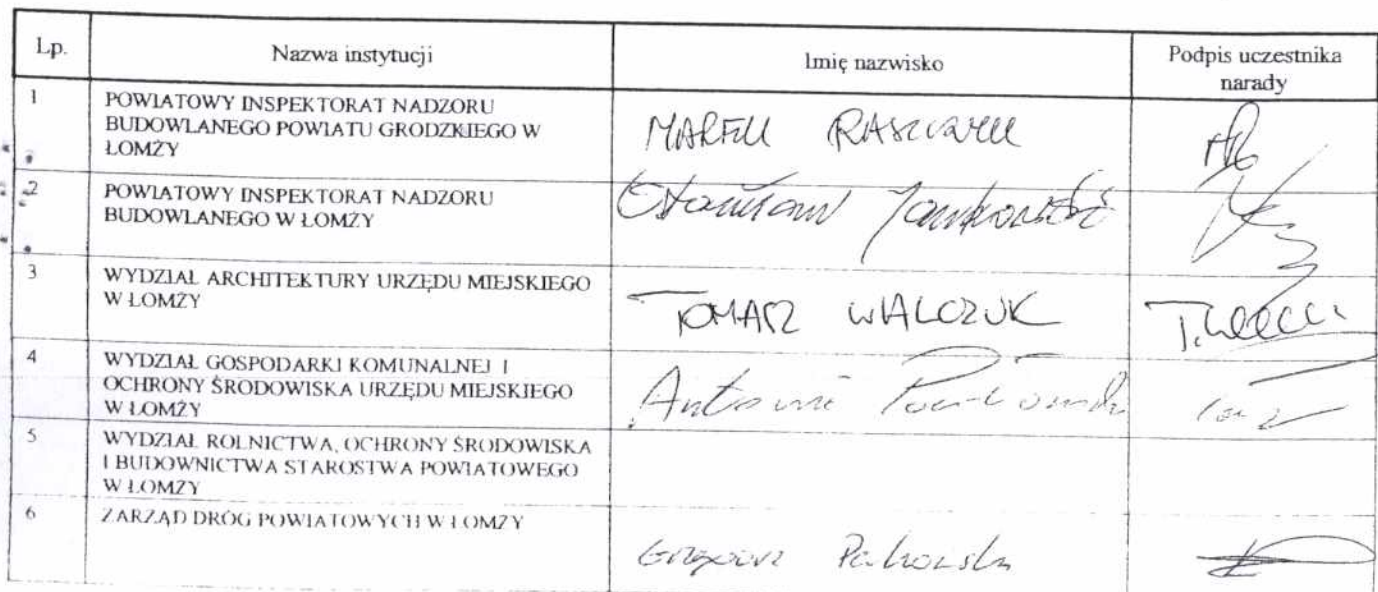 Lp.
Nazwa instytucji
Imię nazwisko
Podpis uczestnika
narady
1
POWIATOWY INSPEKTORAT NADZORU
BUDOWLANEGO POWIATU GRODZKIEGO W
ŁOMŻY
MAREK
2
POWIATOWY INSPEKTORAT NADZORU
BUDOWLANEGO W ŁOMŻY
Stanisław Jankowski
3
WYDZIAŁ ARCHITEKTURY URZĘDU MIEJSKIEGO
W ŁOMŻY
TOMASZ WALCZUK
4
WYDZIAŁ GOSPODARKI KOMUNALNEJ I
OCHRONY ŚRODOWISKA URZĘDU MIEJSKIEGO
W ŁOMŻY
Antoni
5
WYDZIAŁ ROLNICTWA, OCHRONY ŚRODOWISKA
I BUDOWNICTWA STAROSTWA POWIATOWEGO
W ŁOMŻY
6
ZARZĄD DRÓG POWIATOWYCH W ŁOMŻY
Grzegorz